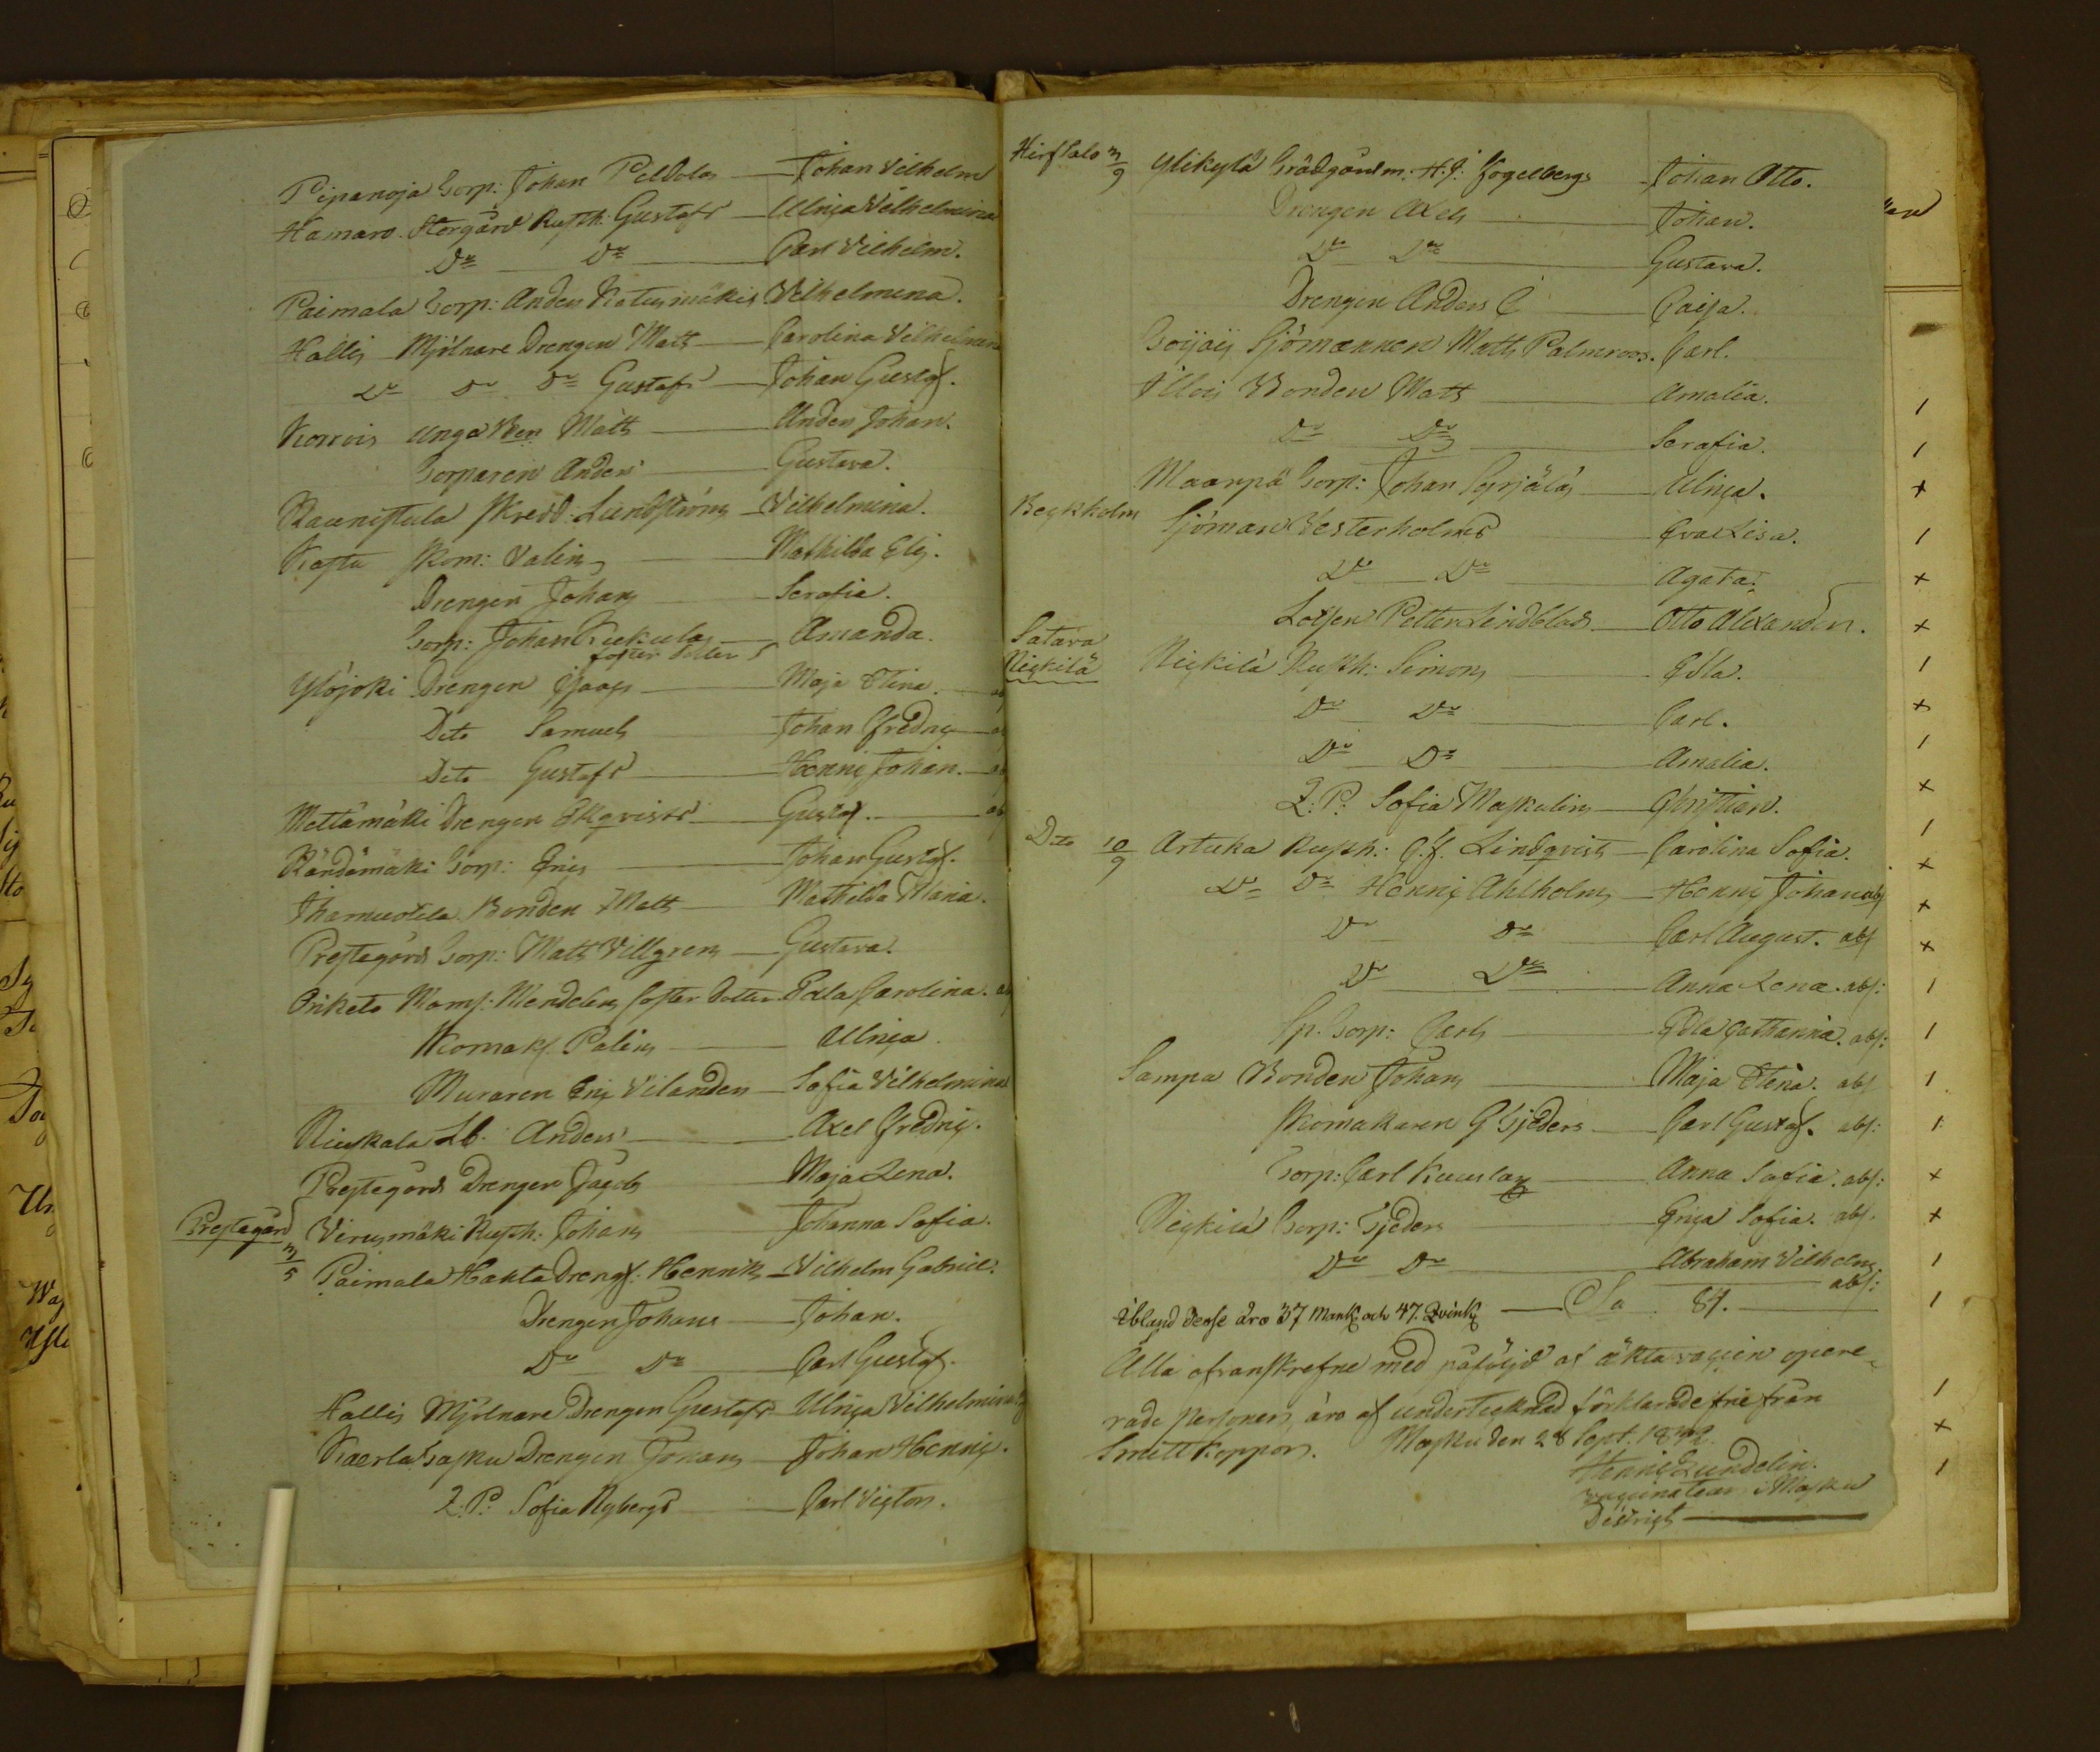 Pipanoja Torp: Johan Peldola — Johan Vilhelm
Hamaro Storgård Rusth: Gustafs — Ulrica Vilhelmina
Do Do — Carl Vilhelm.
Paimala Torp: Anders Vilhelmina.
Hallis Mjölnare Drengen Matts — Carolina Vilhelmin
Do Do Do Gustafs — Johan Gustaf.
Korrois unga Bon Matts — Anders Johan.
Torparen Anders — Gustava.
Raunistula skredd: Lundströms — Vilhelmina.
Kastu skom: Valins — Mathilda Elis.
Drengen Johans — Serafia.
Torp: Johan Kukulas — Amanda.
foster dotter
Ylöjoki Drengen Isaacs — Maja Stina.
Dito Samuels — Johan Fredric
Dito Gustafs — Henric Johan.
Mettämäki Drengen Ekqvists — Gustaf.
Rändämäki Torp: Erics — Johan Gustaf.
Ihamuotila Bonden Matts — Mathilda Maria.
Prestegårds Torp: Matts Villgrens — Gustava.
Oriketo Mams: Mendelins foster dotter Edla Carolina.
Skomaks. Palins — Ulrica.
Muraren Eric Vilanders — Sofia Vilhelmina
Niuskala Lb. Anders — Axel Fredric.
Prestegårds Drengen Jacobs — Maja Lena.
Prestegård Virusmäki Rusth: Johans — Johanna Sofia.
3/5 Paimala Hakta Drengs: Henriks — Vilhelm Gabriel.
Drengen Johans — Johan.
Do Do — Carl Gustaf.
Hallis Mjölnare Drengen Gustafs — Ulrica Vilhelmina
Kaerla Tasku Drengen Johans — Johan Henric.
Q: P: Sofia Nybergs — Carl Victor.
Hirfsalo 3/9 Ylikylä Trädgårdsm: H. J: Fogelbergs — Johan Otto.
Drengen Axels — Johan.
Do Do — Gustava.
Drengen Anders E — Caisa.
Toijais Sjömannen Matts Palmroos. Carl.
Illois Bonden Matts — Amalia.
Do Do — Serafia.
Maanpä Torp: Johan Syrjäläs — Ulrica.
Beckholm Sjöman Vesterholms — Eva Lisa.
Do Do — Agata.
Lotsen Petter Lindblads — Otto Alexander.
Satava
Nickilä Nickilä Rusth: Simons — Edla.
Do Do — Carl.
Do Do — Amalia.
Q: P: Sofia Maskulins — Christian.
Dito 10/9 Artuka Rusth: C. J. Lindqvists — Carolina Sofia.
Do Do Henric Ahlholms — Henric Johan abs
Do Do — Carl August. abs
Do Do — Anna Lena. abs:
Sp. Torp: Carls — Edla Catharina. abs:
Sampa Bonden Johans — Maja Stina. abs
Skomakaren G Tjeders — Carl Gustaf. abs:
Torp: Carl Kuuslax — Anna Sofia. abs:
Nickilä Torp: Tjeders — Erica Sofia. abs.
Do Do — Abraham Vilhelm.
abs:
Ibland desse äro 37 Mank: och 47. Qvink: — Sa 84.
Alla ofvanskrefne med påföljd af äkta vaccin opere-
rade personer äro af undertecknad förklarade frie från
Smittkoppor. Masku den 28 Sept. 1842.
Henric Lundelin.
vaccinateur i Masku
District